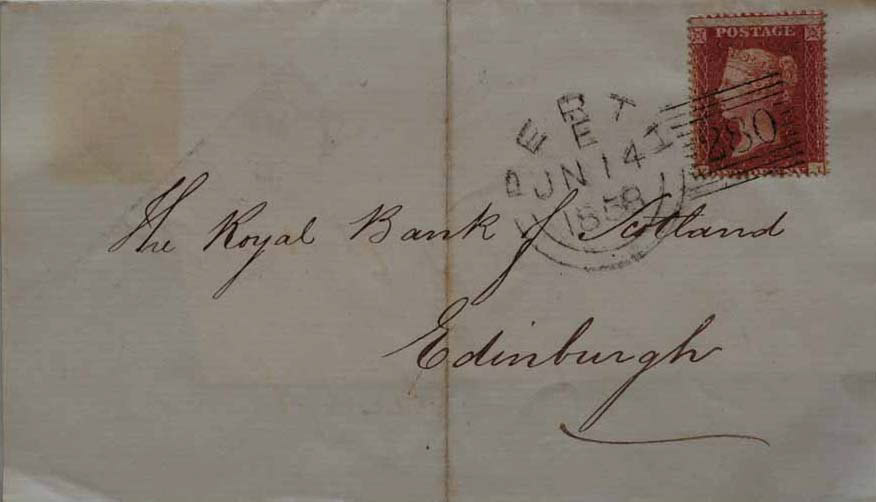 POSTAGE
PERTH
E
JN 14
1858
280
The Royal Bank of Scotland
Edinburgh